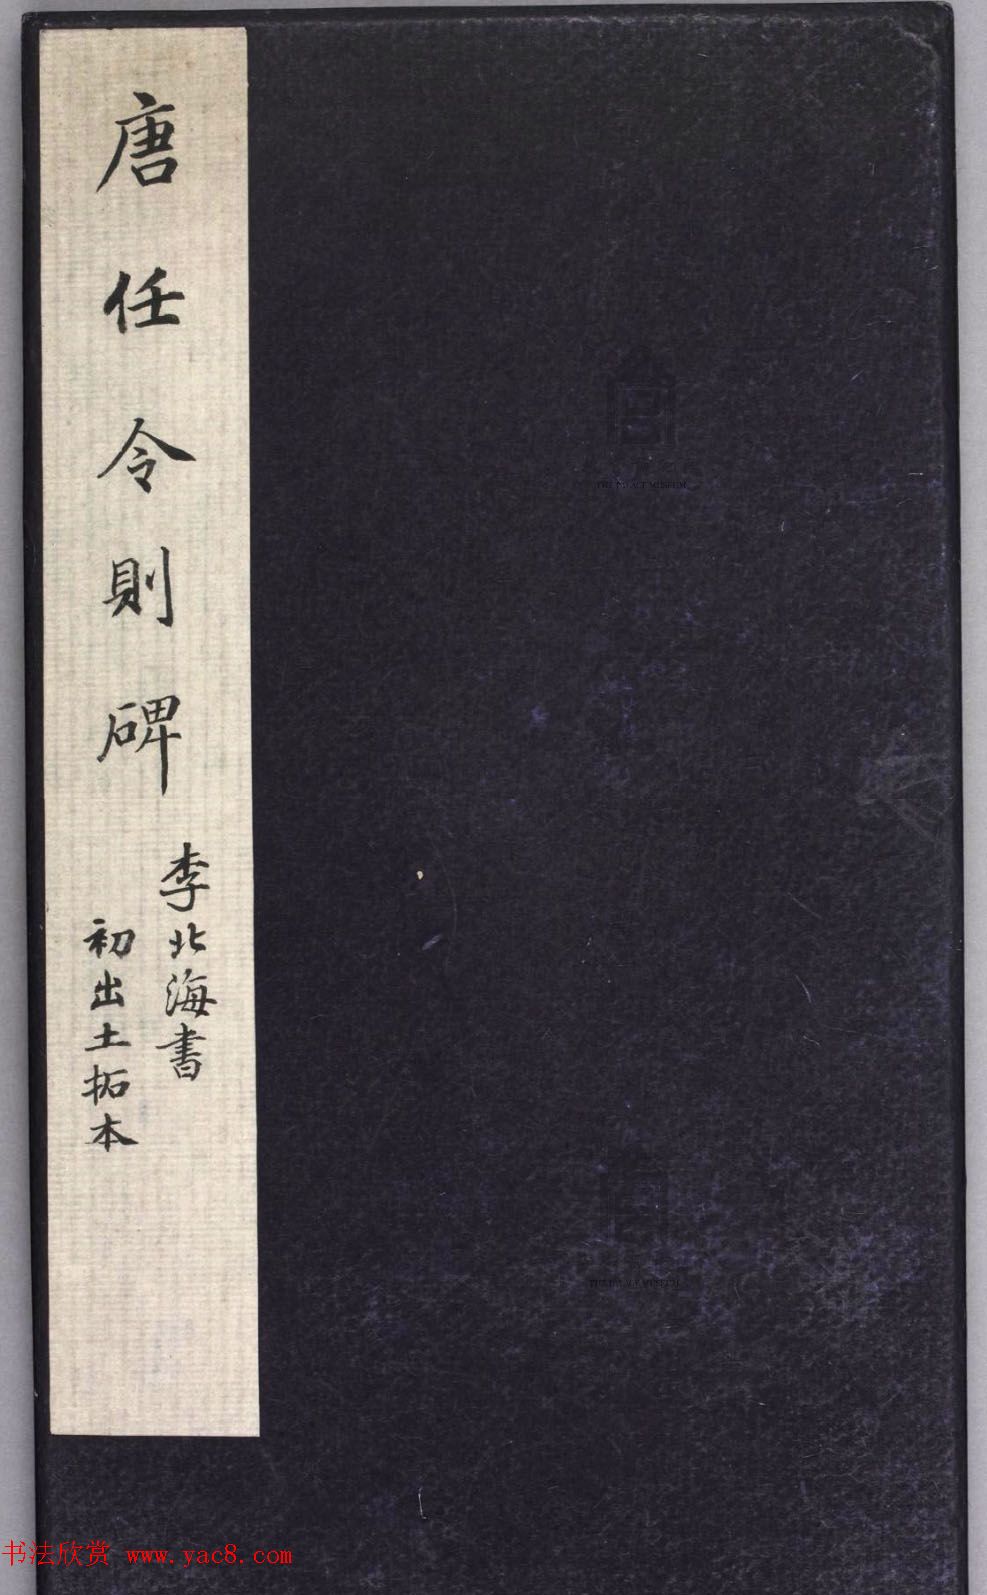 唐任令則碑
李北海書
初出土拓本
THE PALACE MUSEUM
THE PALACE MUSEUM
书法欣赏 www.yac8.com